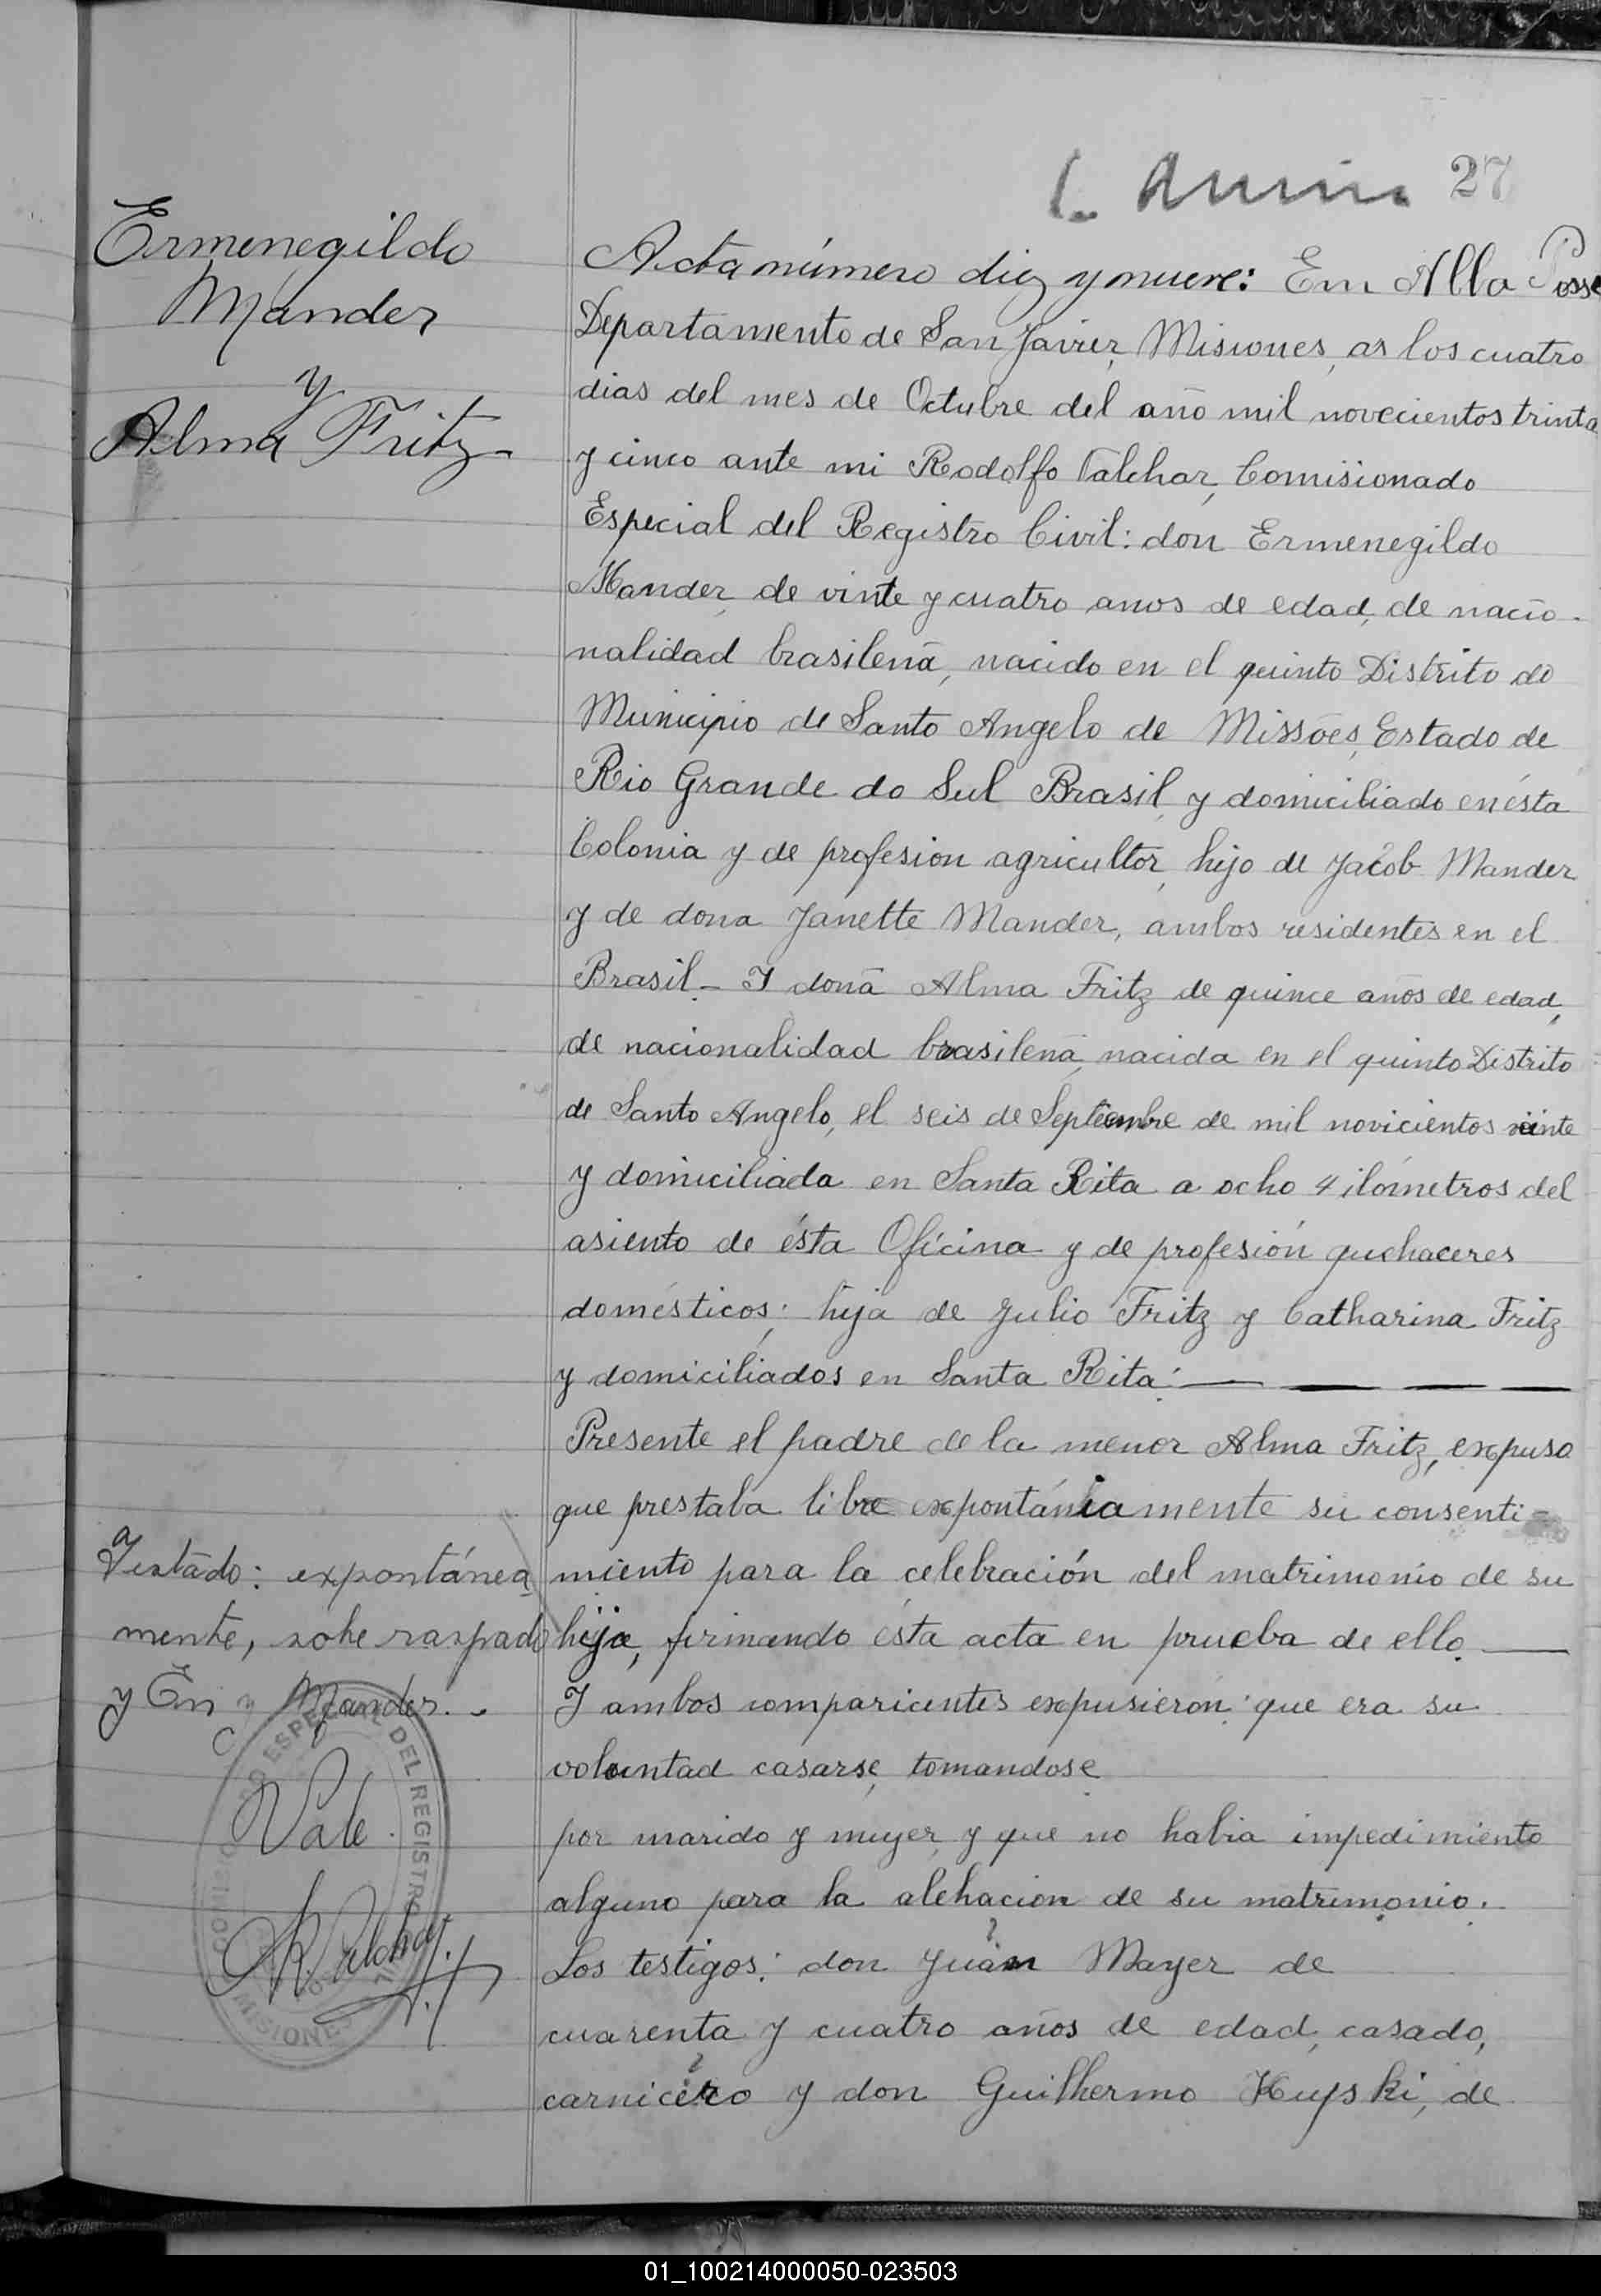 27
Ermenegildo
Mander
y
Alma Fritz-
Acta número diez y nueve: Em Alba Posse
Departamento de San Javier, Misiones, as los cuatro
dias del mes de Octubre del año mil novecientos trinta
y cinco ante mi Rodolfo Valchar, Comisionado
Especial del Registro Civil: don Ermenegildo
Mander, de vinte y cuatro anos de edad, de nacio-
nalidad brasilenã, nacido en el quinto Distrito do
Municipio de Santo Angelo de Missões, Estado de
Rio Grande do Sul Brasil, y domiciliado en ésta
Colonia y de profesion agricultor, hijo de Jacob Mander
y de dona Janette Mander, ambos residentes en el
Brasil.- I donã Alma Fritz de quince años de edad,
de nacionalidad brasilenã, nacida en el quinto Distrito
de Santo Angelo, el seis de Septiembre de mil novicientos veinte
y domiciliada en Santa Rita a ocho kilómetros del
asiento de ésta Oficina y de profesión quehaceres
domésticos; hija de Julio Fritz y Catharina Fritz
y domiciliados en Santa Rita.
Presente el padre de la menor Alma Fritz, expuso
que prestaba libre expontániamente su consenti-
miento para la celebración del matrimonio de su
hija, firmando ésta acta en prueba de ello.
I ambos comparicentes expusieron: que era su
voluntad casarse, tomandose
por marido y mujer, y que no habia impedimiento
alguno para la alehacion de su matrimonio.
Los testigos: don Juan Mayer de
cuarenta y cuatro años de edad, casado,
carnicero y don Guilhermo Kuyski, de
Testado: expontánea
mente, sobre raspado
y En Mander.
Vale.
R. Valchar
ESPECIAL DEL REGISTRO
MISIONES
01_100214000050-023503